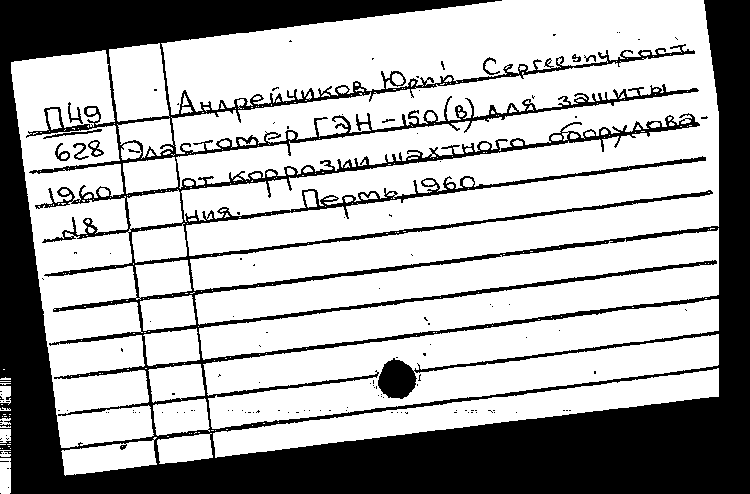 П49 Андрейчиков, Юрий Сергеевич, сост.
628 Эластомер ГЭН-150(в) для защиты
1960 от коррозии шахтного оборудова-
28 ния. Пермь, 1960.